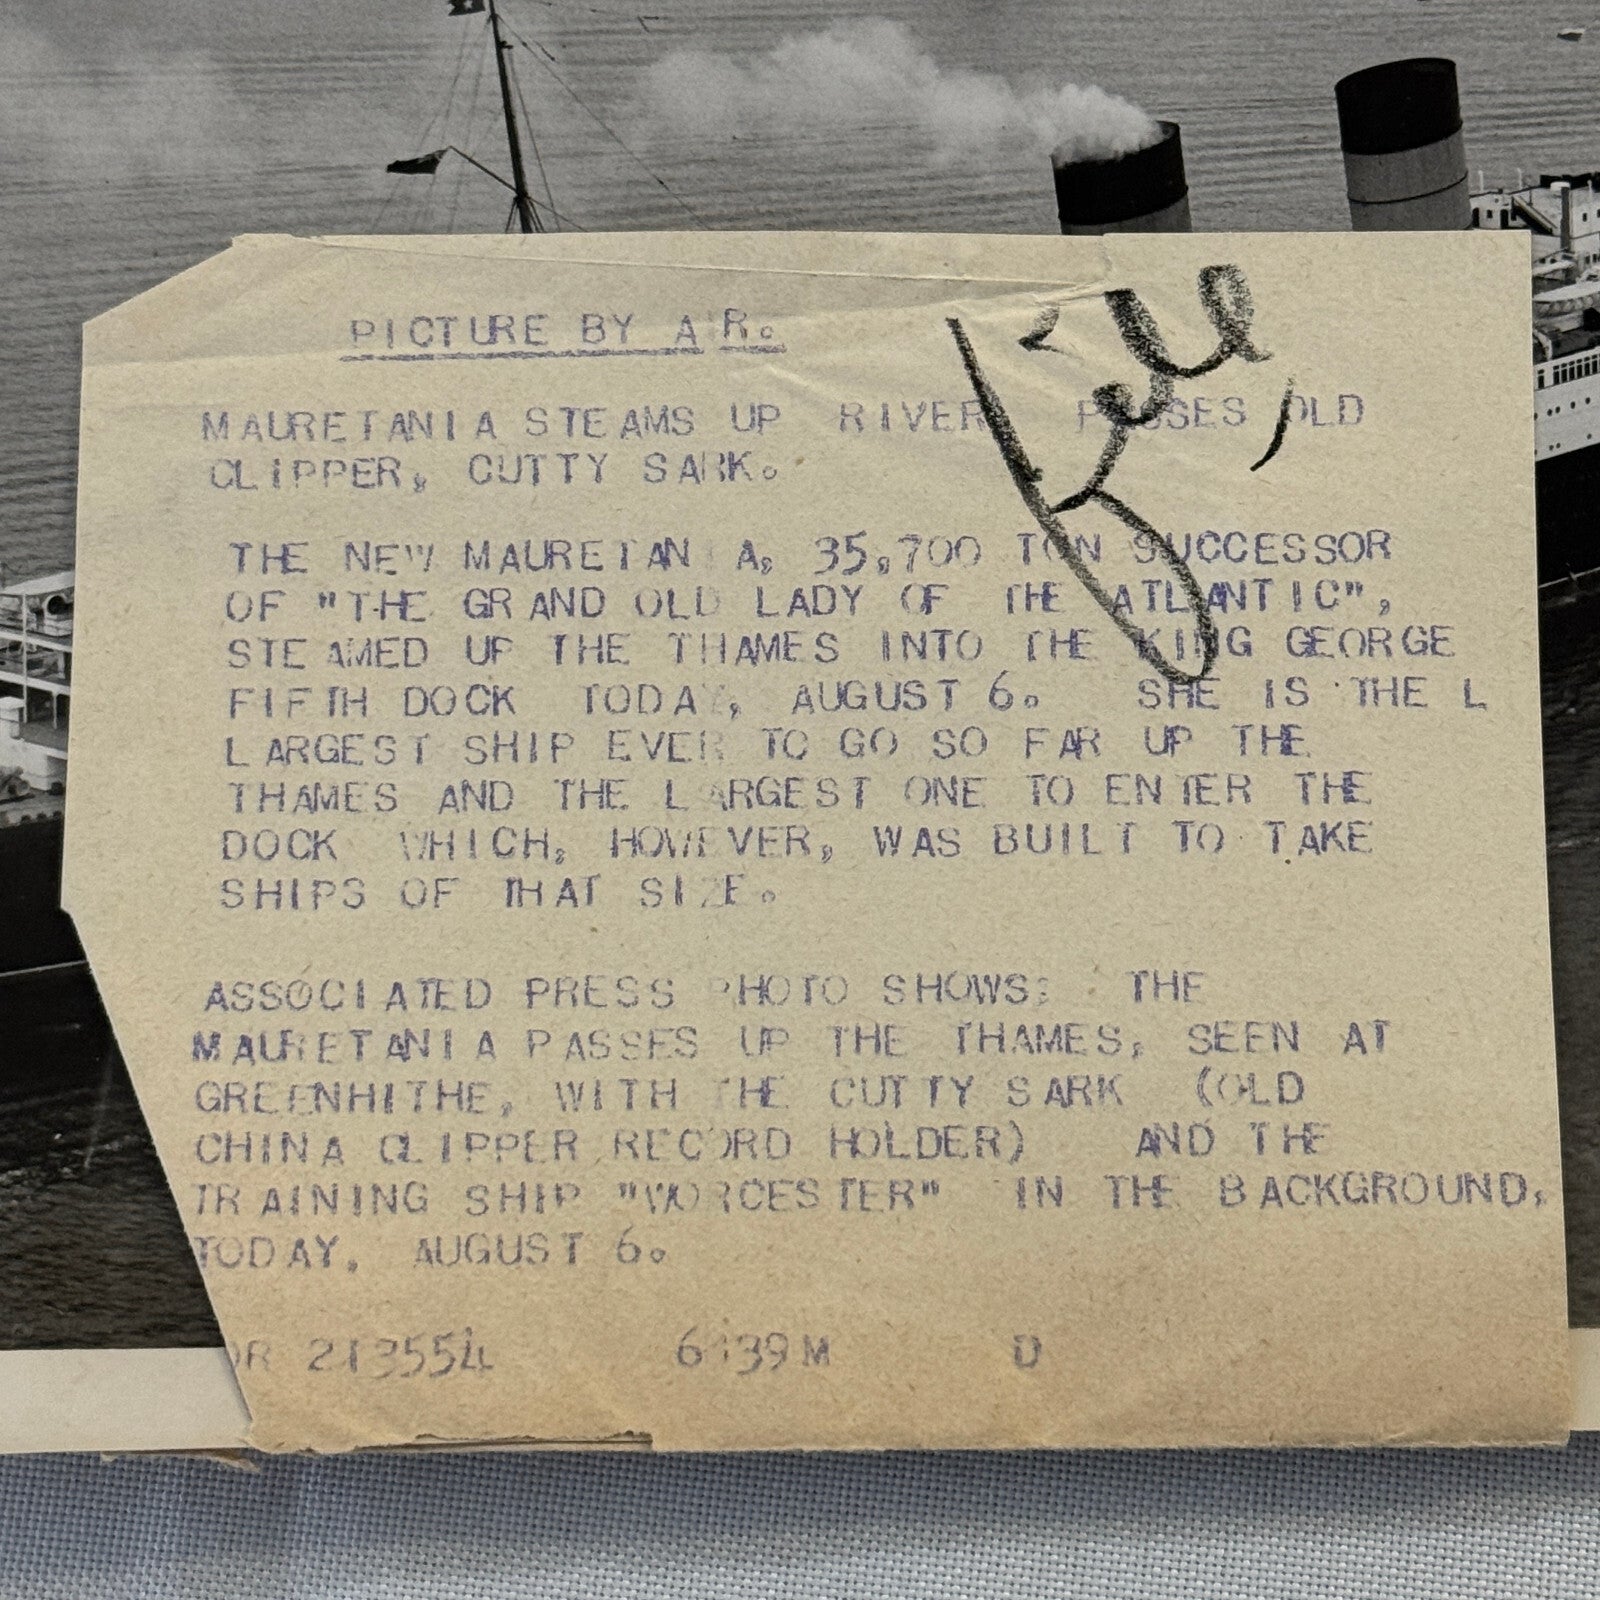 PICTURE BY AIR.
MAURETANIA STEAMS UP RIVER PASSES OLD
CLIPPER, CUTTY SARK.
THE NEW MAURETANIA, 35,700 TON SUCCESSOR
OF "THE GRAND OLD LADY OF THE ATLANTIC",
STEAMED UP THE THAMES INTO THE KING GEORGE
FIFTH DOCK TODAY, AUGUST 6. SHE IS THE L
LARGEST SHIP EVER TO GO SO FAR UP THE
THAMES AND THE LARGEST ONE TO ENTER THE
DOCK WHICH, HOWEVER, WAS BUILT TO TAKE
SHIPS OF THAT SIZE.
ASSOCIATED PRESS PHOTO SHOWS: THE
MAURETANIA PASSES UP THE THAMES, SEEN AT
GREENHITHE, WITH THE CUTTY SARK (OLD
CHINA CLIPPER RECORD HOLDER) AND THE
TRAINING SHIP "WORCESTER" IN THE BACKGROUND,
TODAY, AUGUST 6.
213554 D